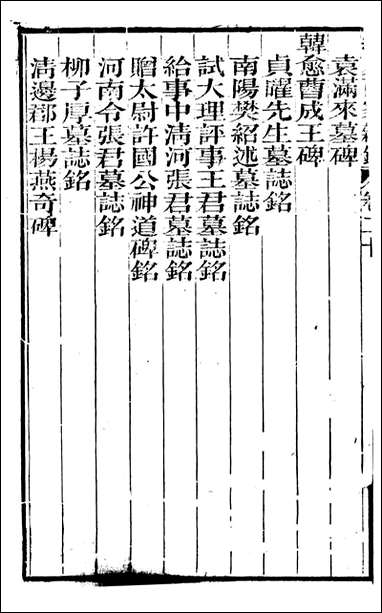 袁滿來墓碑
韓愈曹成王碑
貞曜先生墓誌銘
南陽樊紹述墓誌銘
試大理評事王君墓誌銘
給事中清河張君墓誌銘
贈太尉許國公神道碑銘
河南令張君墓誌銘
柳子厚墓誌銘
清邊郡王楊燕奇碑